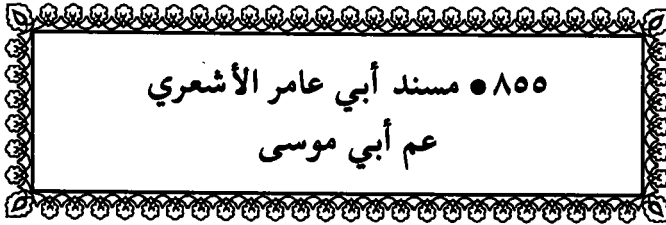 ٨٥٥ ● مسند أبي عامر الأشعري
عم أبي موسى